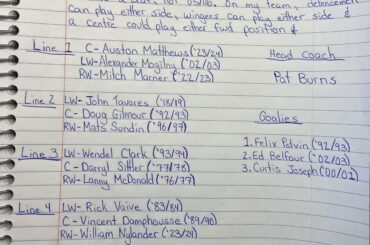 can play either side, wingers can play either side &
a centre could play either fwd position &
Line 1 C- Auston Matthews ('23/24) Head Coach
LW- Alexander Mogilny ('02/03)
RW- Mitch Marner ('22/23) Pat Burns
Line 2 LW- John Tavares ('18/19)
C- Doug Gilmour ('92/93) Goalies
RW- Mats Sundin ('96/97)
1. Felix Potvin ('92/93)
Line 3 LW- Wendel Clark ('93/94) 2. Ed Belfour ('02/03)
C- Darryl Sittler ('77/78) 3. Curtis Joseph ('00/01)
RW- Lanny McDonald ('76/77)
Line 4 LW- Rick Vaive ('83/84)
C- Vincent Damphousse ('89/90)
RW- William Nylander ('23/24)